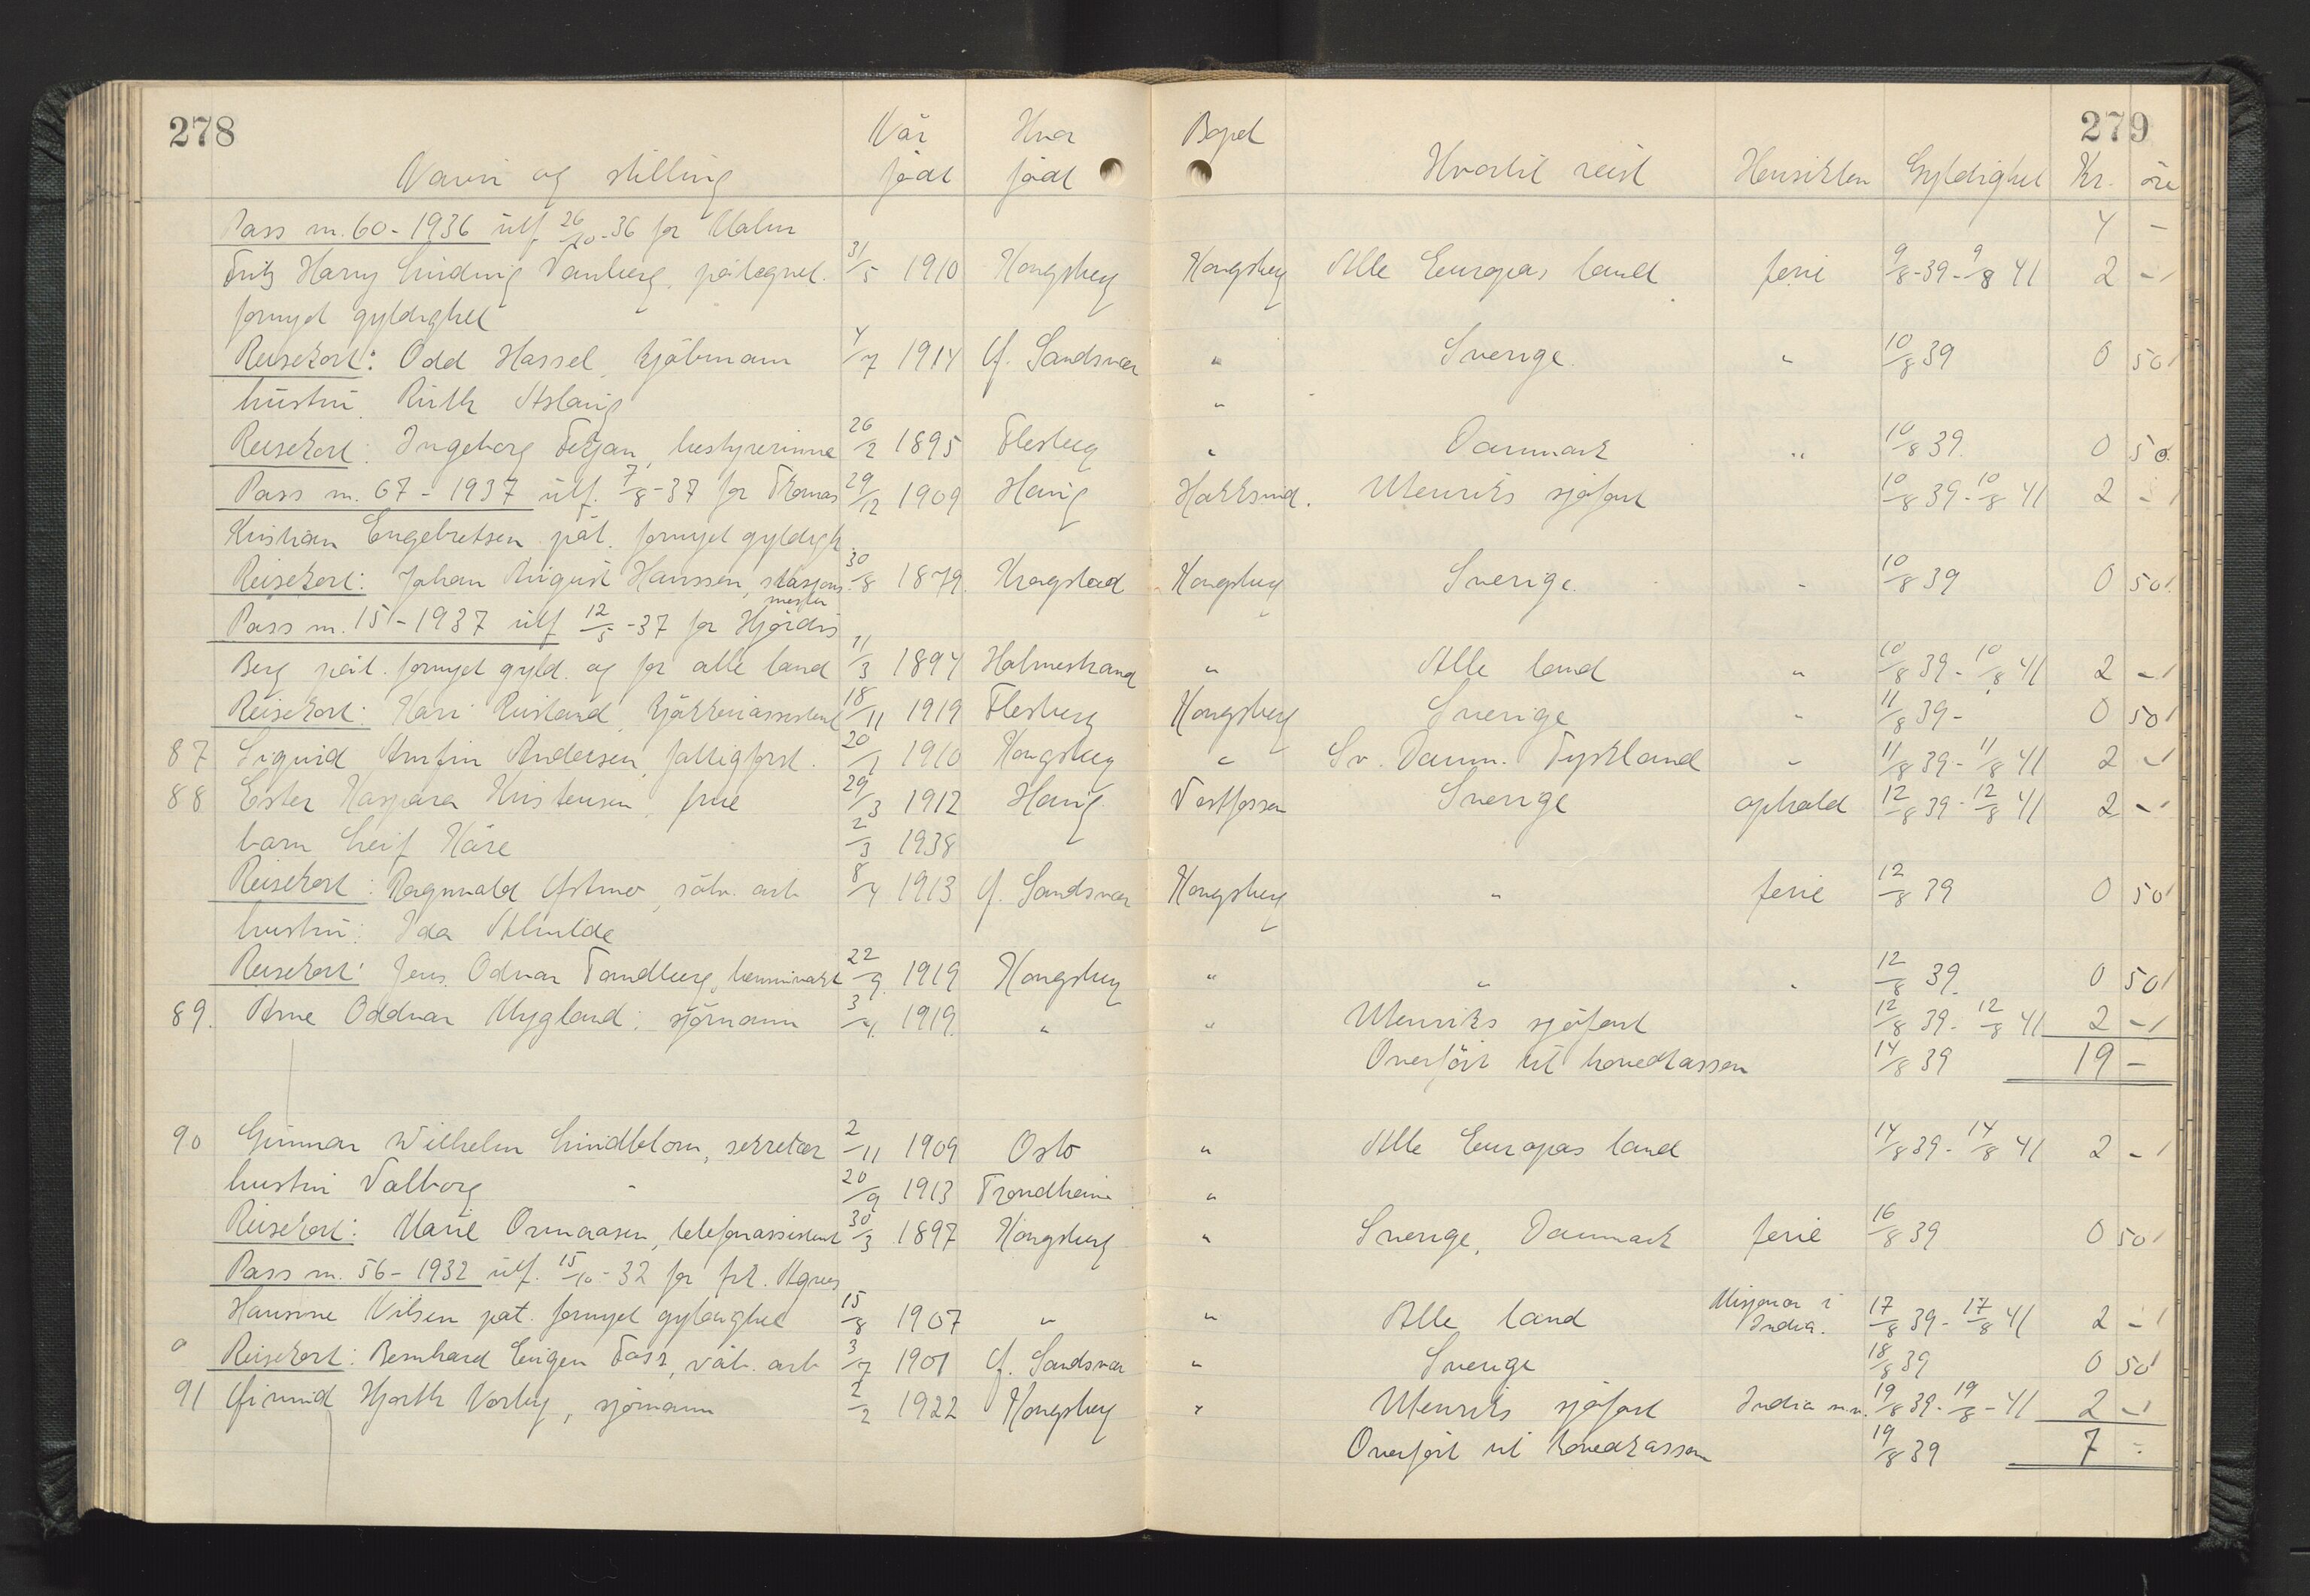 278 279
Når Hvor Bopel
Navn og stilling født født Hvortil reist Hensikten Gyldighet Kr. øre
Pass nr. 60-1936 utf. 26/10-36 for Malm 4 -
Fritz Harry Ludvig Vanberg, påtegnet. 31/5 1910 Kongsberg Kongsberg Alle Europas land ferie 9/8-39-9/8 41 2 -
fornyet gyldighet
Reisekort: Odd Hassel, kjøbmann 4/7 1914 Ø. Sandsvær " Sverige " 10/8 39 0 50
hustru Ruth Aslaug "
Reisekort: Ingeborg , bestyrerinne 26/2 1895 Flesberg " Danmark " 10/8 39. 0 50
Pass nr. 67-1937 utf. 7/8-37 for Thomas 29/12 1909 Haug Hokksund. Utenriks sjøfart 10/8 39-10/8 41 2 -
Kristian Engebretsen påt. fornyet gyldigh.
Reisekort: Johan August Hanssen, stasjons- 30/8 1879 Kragstad Kongsberg Sverige. " 10/8 39 0 50
mester
Pass nr. 15-1937 utf 12/5-37 for Hjørdis
Berg påt. fornyet gyld. og for alle land 11/3 1894 Holmestrand " Alle land " 10/8 39-10/8 41 2 -
Reisekort: Kari Rustand, kjøkkenassistent 18/11 1919 Flesberg Kongsberg Sverige " 11/8 39- 0 50
87 Sigurd Arnfin Andersen, fattigforst. 20/1 1910 Kongsberg " Sv. Danm. Tyskland " 11/8 39-11/8 41 2 -
88 Ester Kaspara Kristensen, frue 29/3 1912 Haug Vestfossen Sverige ophold 12/8 39-12/8 41 2 -
barn Leif Kåre 23/3 1938
Reisekort: Ragnvald , sølv. arb 8/4 1913 Ø. Sandsvær Kongsberg " ferie 12/8 39 0 50
hustru: Ida Alvilde
Reisekort: Jens Odvar Tandberg, 22/9 1919 Kongsberg " " " 12/8 39 0 50
89. Arne Oddvar Mygland: sjømann 3/4 1919. " " Utenriks sjøfart 12/8 39-12/8 41 2 -
Overført til hovedkassen 14/8 39 19 -
90 Gunnar Wilhelm Lindblom, sekretær 2/11 1909 Oslo " Alle Europas land 14/8 39-14/8 41 2 -
hustru Valborg " 20/9 1913 Trondheim "
Reisekort: Marie Ormaasen, telefonassistent 30/3 1897 Kongsberg " Sverige, Danmark ferie 16/8 39 0 50
Pass nr. 56-1932 utf. 15/10-32 for frk. Agnes
Hansine Nilsen påt. fornyet gyldighet 15/8 1907 " " Alle land Misjonær i India. 17/8 39-17/8 41 2 -
Reisekort: Bernhard Eugen Foss, våb. arb 3/7 1901 Ø. Sandsvær " Sverige 18/8 39 0 50
91 Øivind Hjorth Vorby, sjømann 2/2 1922 Kongsberg " Utenriks sjøfart India m.m. 19/8 39-19/8-41 2 -
Overført til hovedkassen 19/8 39 7 -